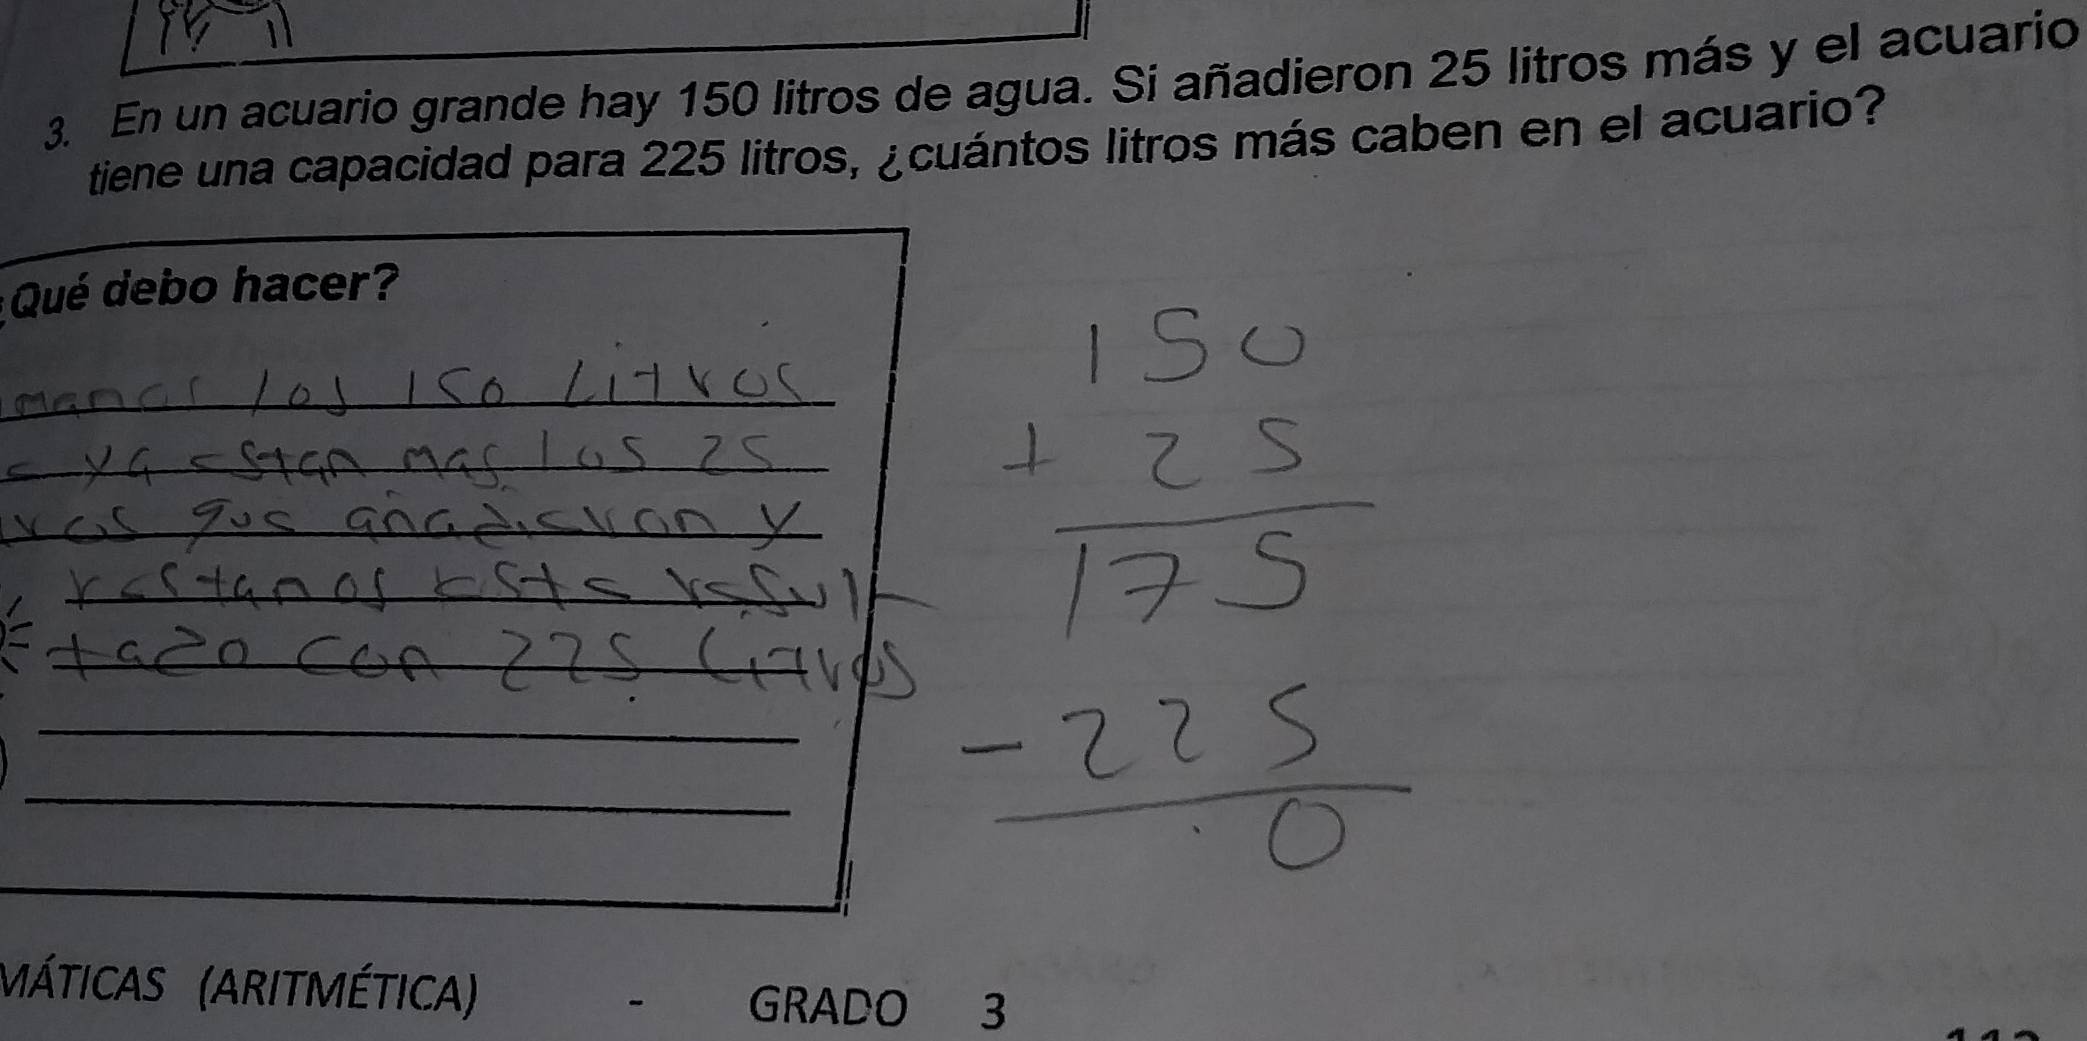 3. En un acuario grande hay 150 litros de agua. Si añadieron 25 litros más y el acuario
tiene una capacidad para 225 litros, ¿cuántos litros más caben en el acuario?
Qué debo hacer?
los 150 Litros
ya estan mas los 25
que añadieron y
restamos este resul
tado con 225 Litros
150
+ 25
175
- 225
0
MÁTICAS (ARITMÉTICA) - GRADO 3